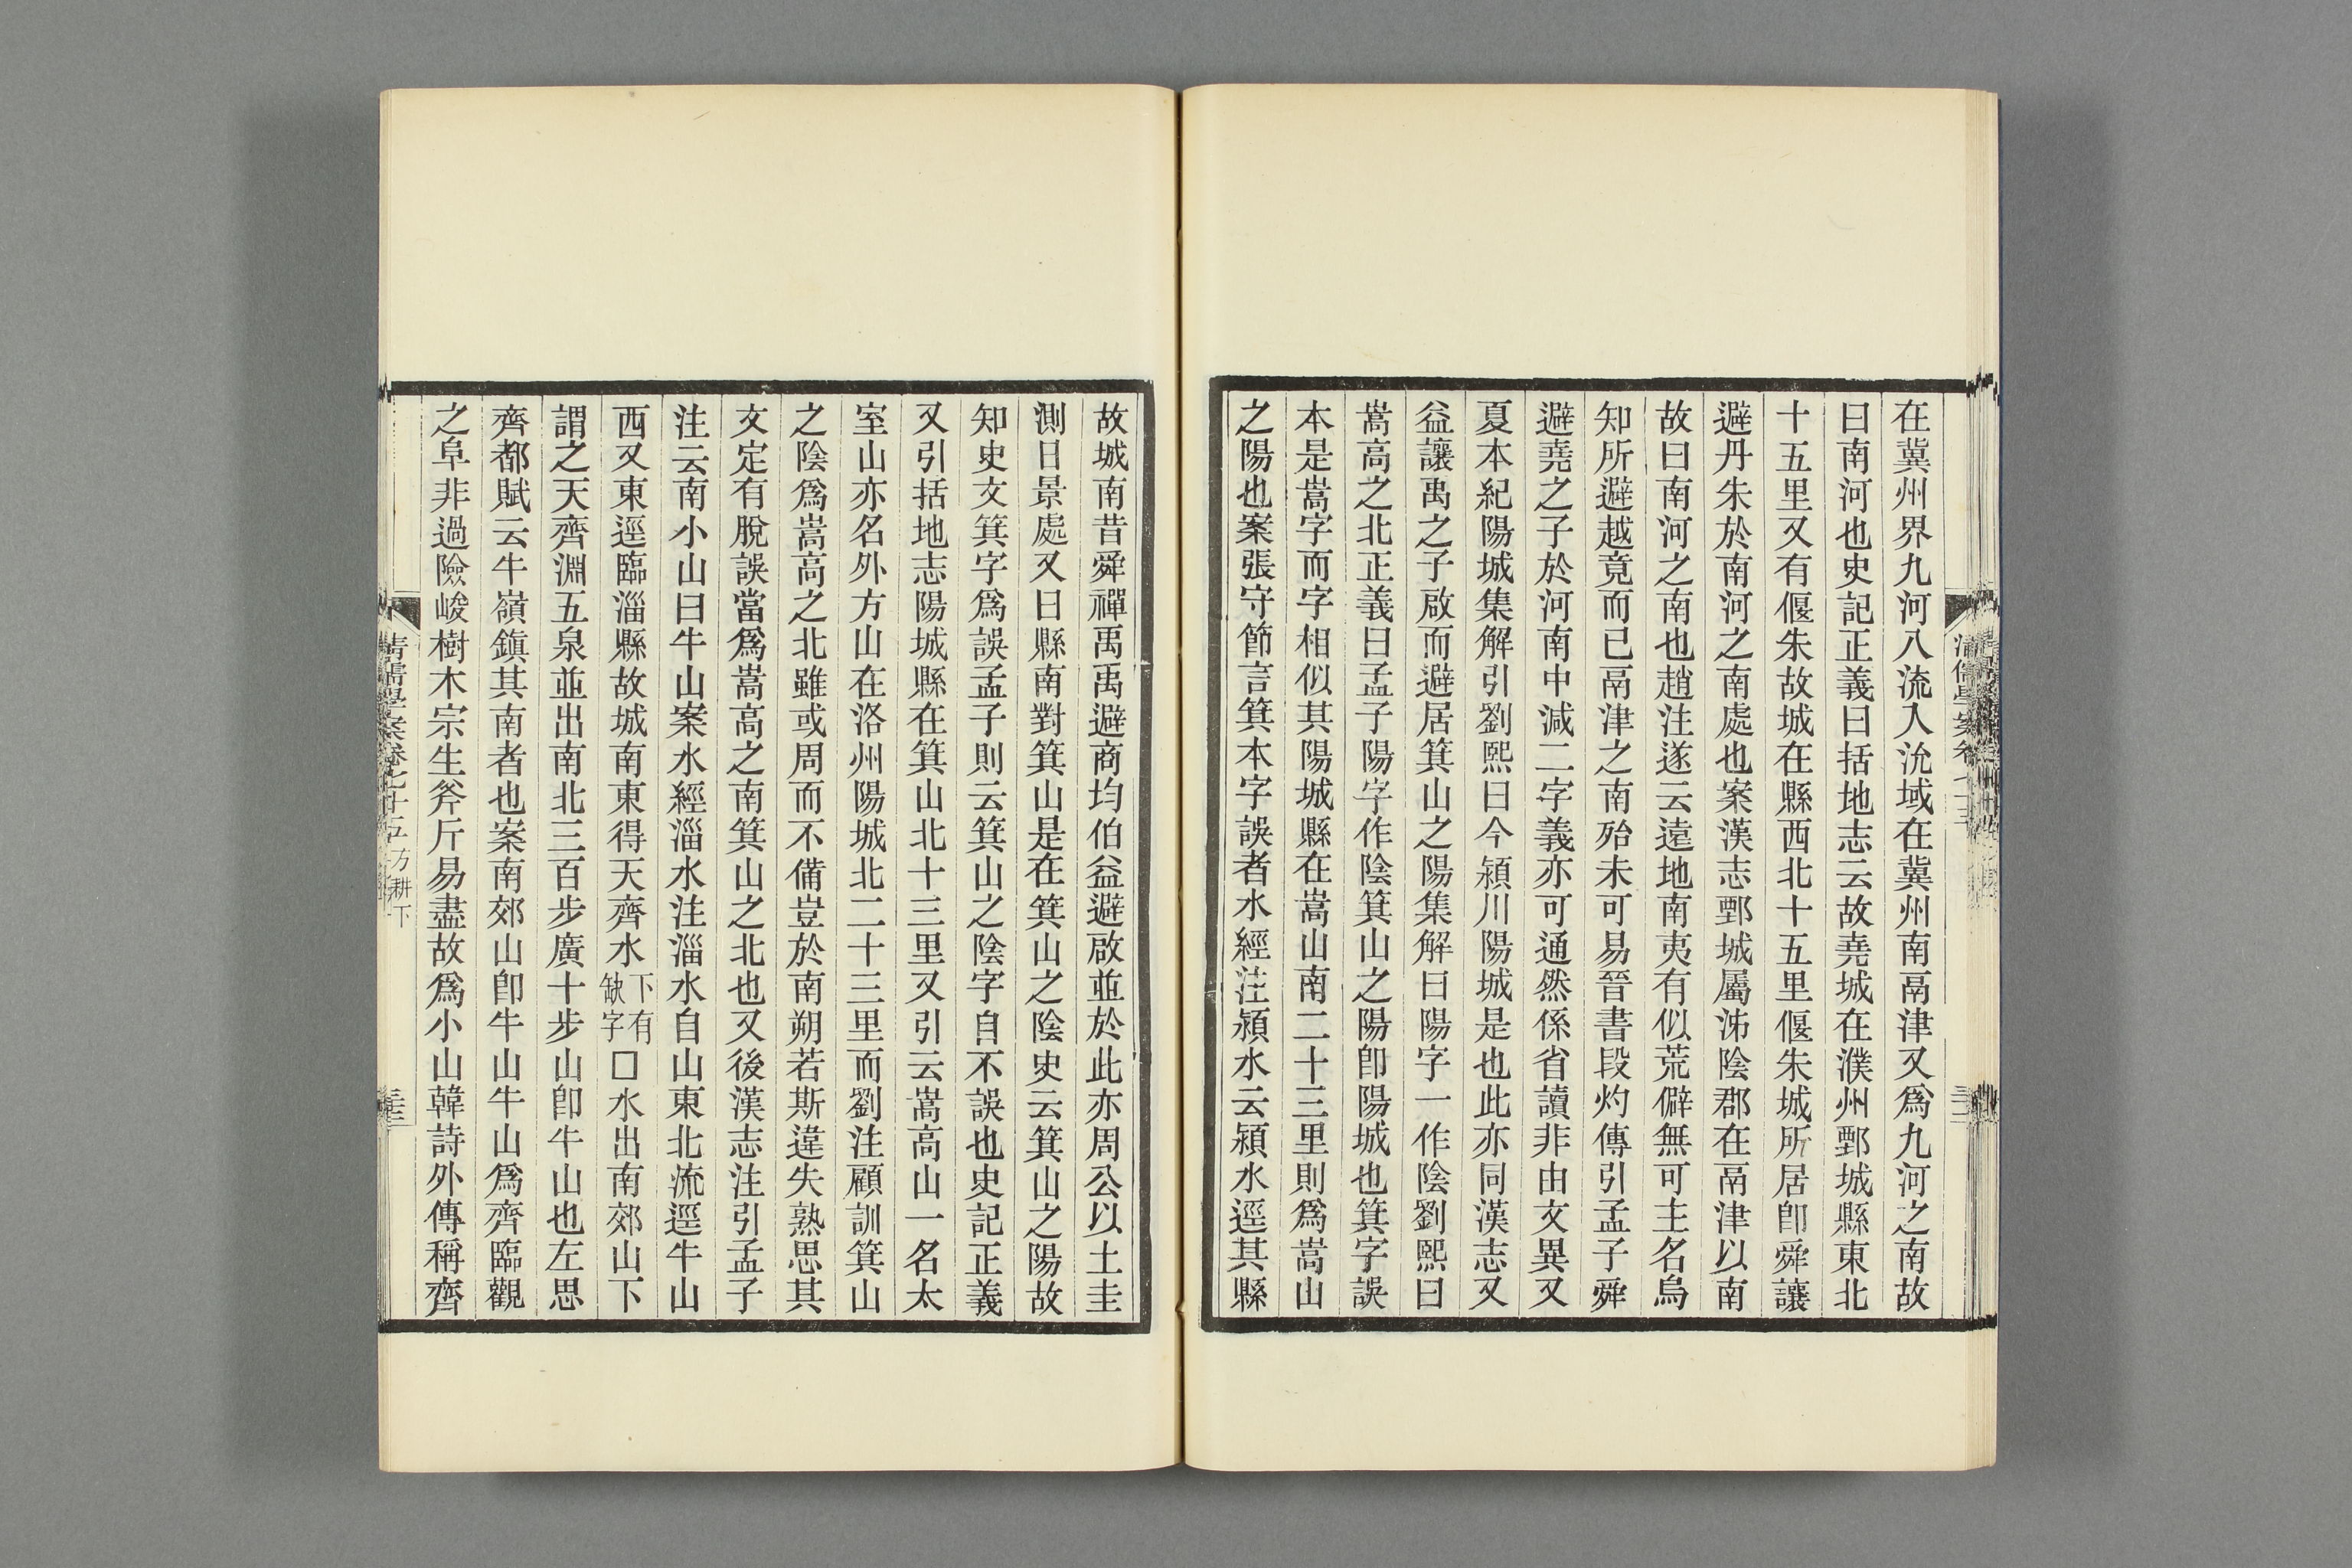 在冀州界九河入流入沇域在冀州南鬲津又爲九河之南故
曰南河也史記正義曰括地志云故堯城在濮州鄄城縣東北
十五里又有偃朱故城在縣西北十五里偃朱城所居卽舜讓
避丹朱於南河之南處也案漢志鄄城屬泲陰郡在鬲津以南
故曰南河之南也趙注遂云遠地南夷有似荒僻無可主名烏
知所避越竟而已鬲津之南殆未可易晉書段灼傳引孟子舜
避堯之子於河南中減二字義亦可通然係省讀非由文異又
夏本紀陽城集解引劉熙曰今潁川陽城是也此亦同漢志又
益讓禹之子啟而避居箕山之陽集解曰陽字一作陰劉熙曰
嵩高之北正義曰孟子陽字作陰箕山之陽卽陽城也箕字誤
本是嵩字而字相似其陽城縣在嵩山南二十三里則爲嵩山
之陽也案張守節言箕本字誤者水經注潁水云潁水逕其縣
故城南昔舜禪禹禹避商均伯益避啟並於此亦周公以土圭
測日景處又曰縣南對箕山是在箕山之陰史云箕山之陽故
知史文箕字爲誤孟子則云箕山之陰字自不誤也史記正義
又引括地志陽城縣在箕山北十三里又引云嵩高山一名太
室山亦名外方山在洛州陽城北二十三里而劉注顧訓箕山
之陰爲嵩高之北雖或周而不備豈於南朔若斯違失熟思其
文定有脫誤當爲嵩高之南箕山之北也又後漢志注引孟子
注云南小山曰牛山案水經淄水注淄水自山東北流逕牛山
西又東逕臨淄縣故城南東得天齊水下有缺字□水出南郊山下
謂之天齊淵五泉並出南北三百步廣十步山卽牛山也左思
齊都賦云牛嶺鎮其南者也案南郊山卽牛山牛山爲齊臨觀
之阜非過險峻樹木宗生斧斤易盡故爲小山韓詩外傳稱齊
清儒學案卷七十五 方耕下
三十三